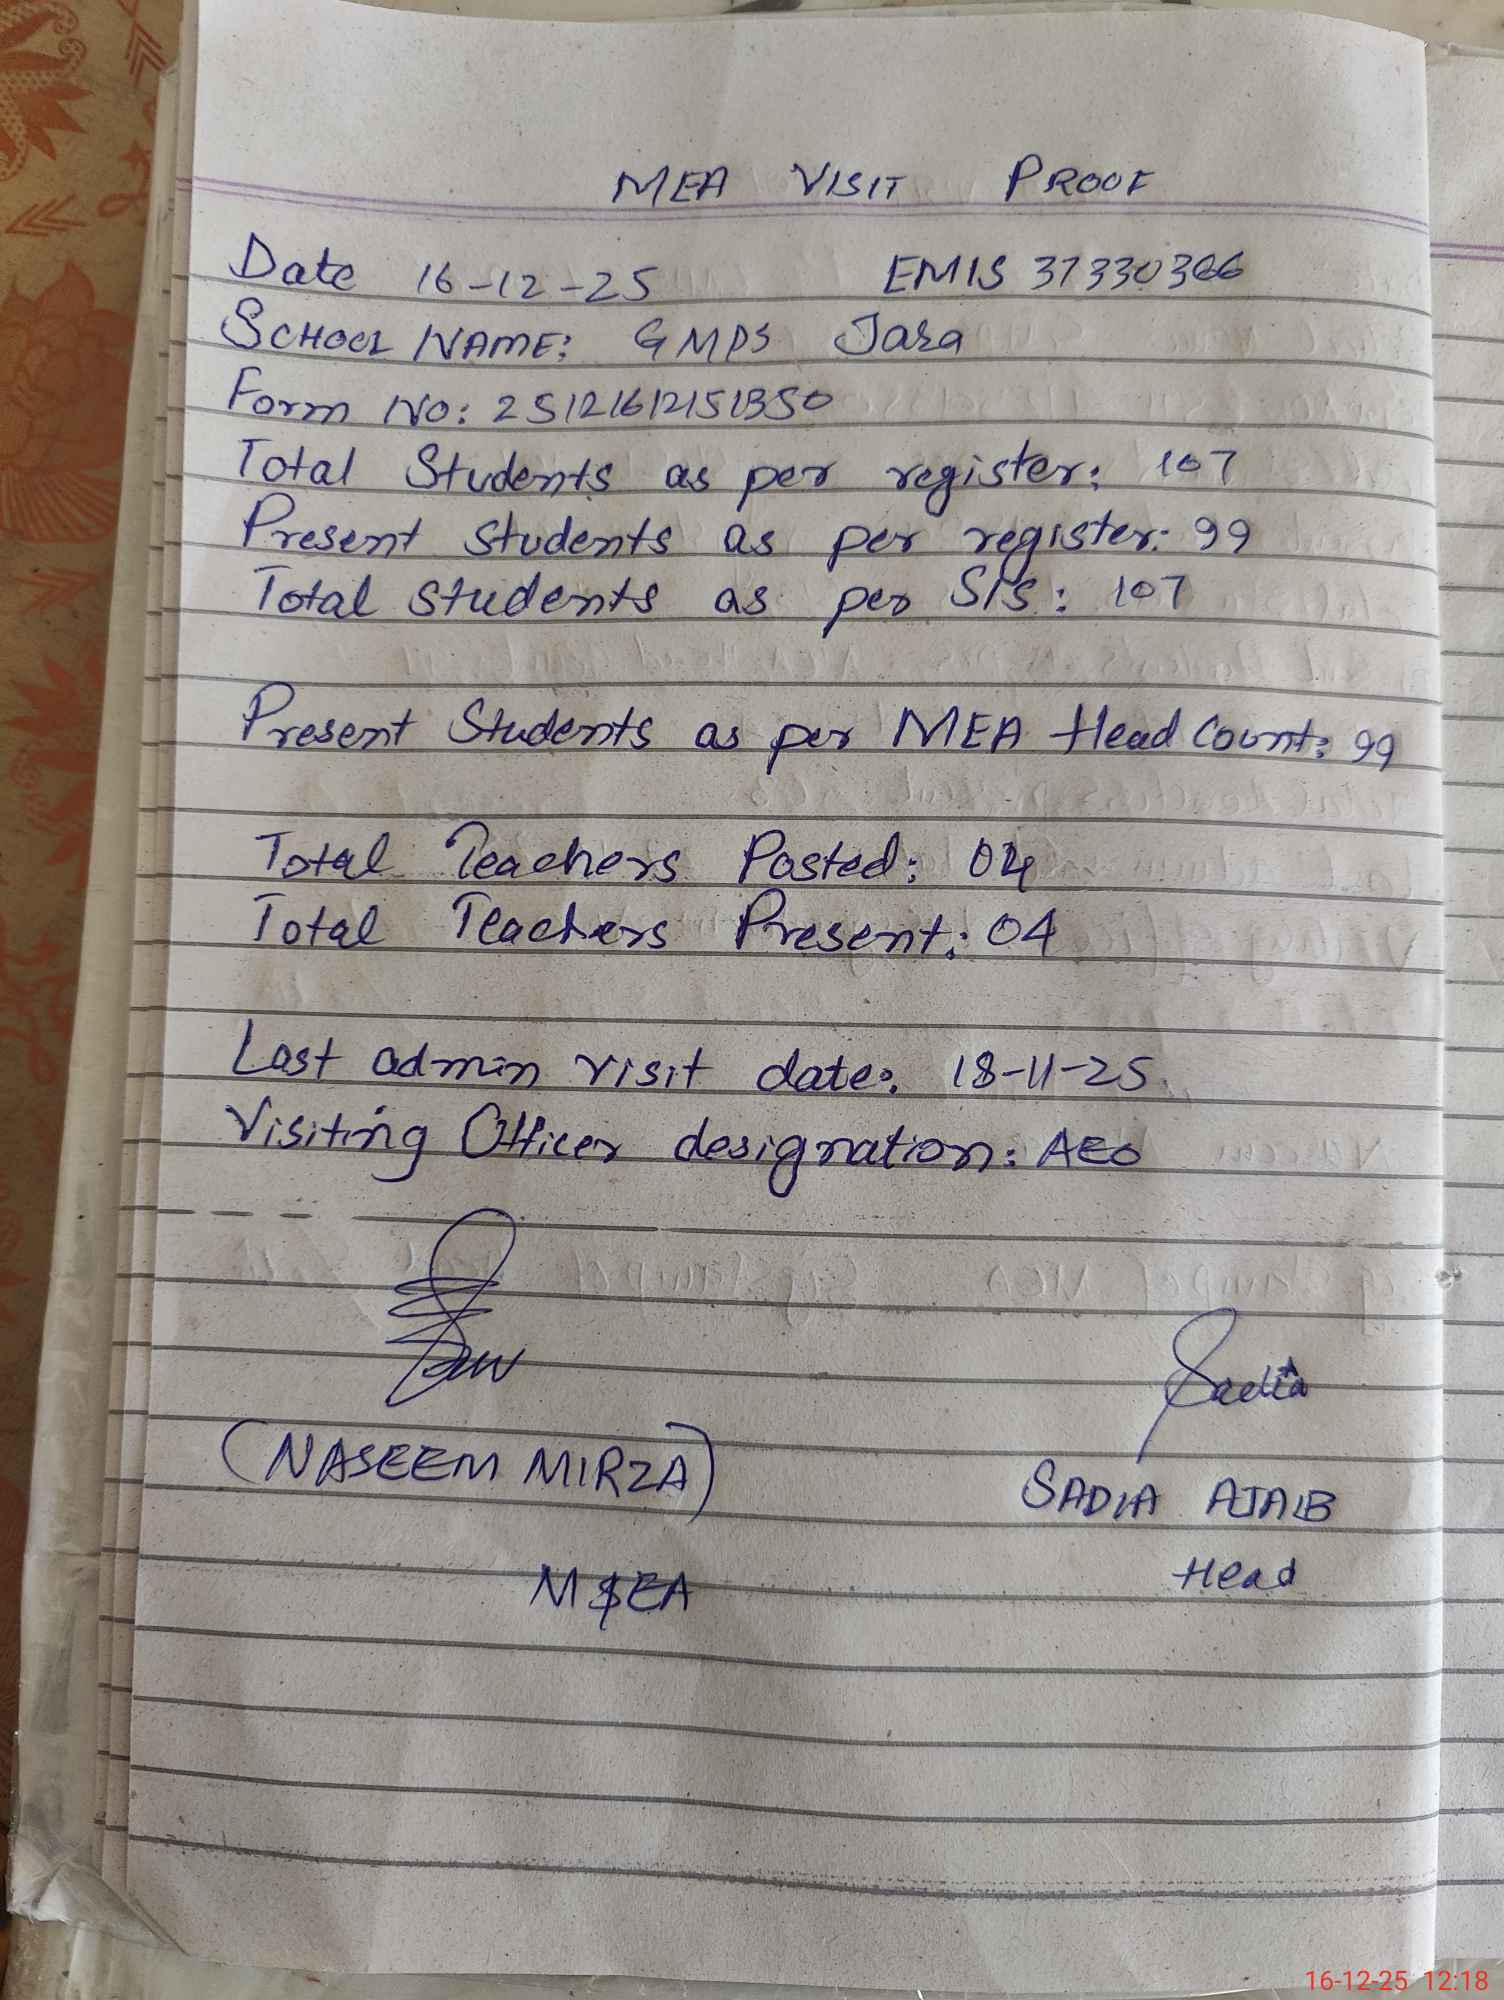 MEA VISIT PROOF
Date 16-12-25 EMIS 37330366
SCHOOL NAME: GMPS Jara
Form NO: 25121612151350
Total Students as per register: 107
Present Students as per register: 99
Total students as per SIS: 107
Present Students as per MEA Head Count: 99
Total Teachers Posted: 04
Total Teachers Present: 04
Last admin visit date: 18-11-25.
Visiting Officer designation: AEO
Sadia
(NASEEM MIRZA)
SADIA AJAIB
Head
MEA
16-12-25 12:18